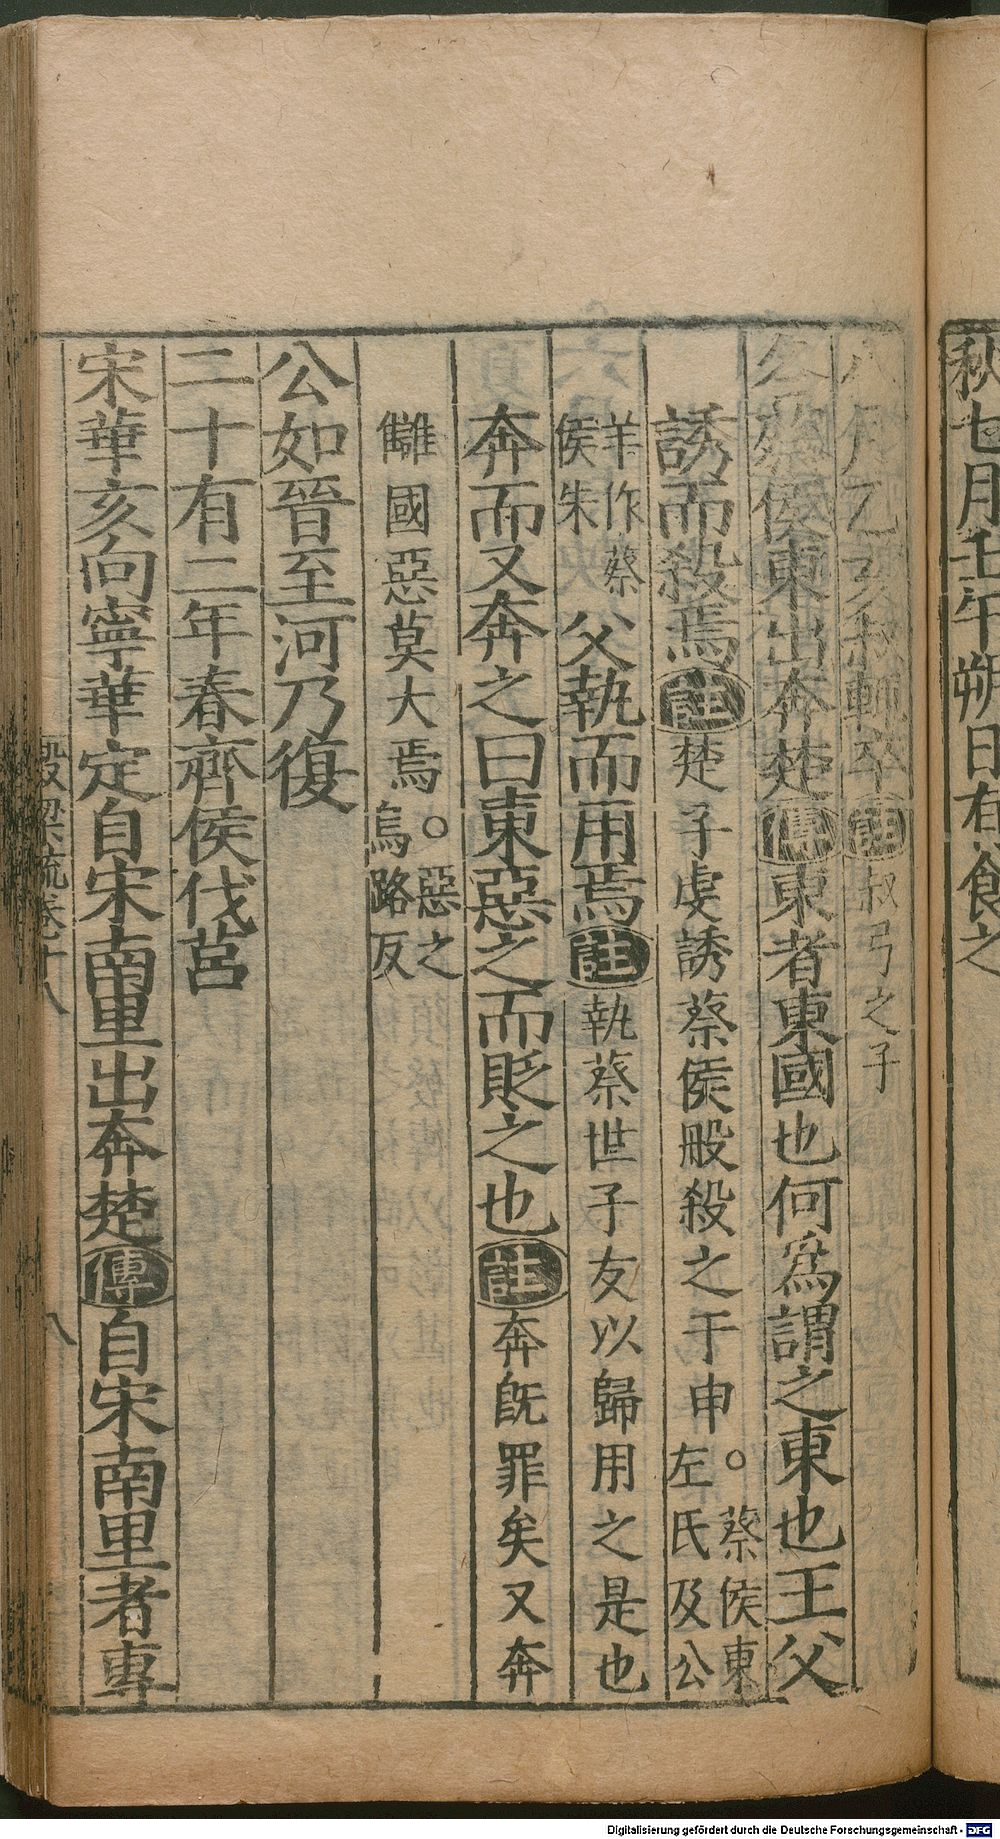 秋七月壬午朔日有食之
八月乙亥叔輙卒註叔弓之子
冬蔡侯東出奔楚傳東者東國也何爲謂之東也王父
誘而殺焉註楚子虔誘蔡侯般殺之于申。蔡侯東左氏及公
羊作蔡侯朱父執而用焉註執蔡世子友以歸用之是也
奔而又奔之曰東惡之而貶之也註奔旣罪矣又奔
讎國惡莫大焉。惡之烏路反
公如晉至河乃復
二十有二年春齊侯伐莒
宋華亥向寧華定自宋南里出奔楚傳自宋南里者專
榖梁疏卷十八 八
Digitalisierung gefördert durch die Deutsche Forschungsgemeinschaft - DFG